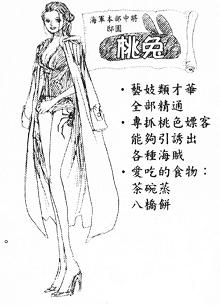 海軍本部中將
邸園
桃兔
・藝妓類才華
全部精通
・專抓桃色嫖客
能夠引誘出
各種海賊
・愛吃的食物：
茶碗蒸
八橋餅